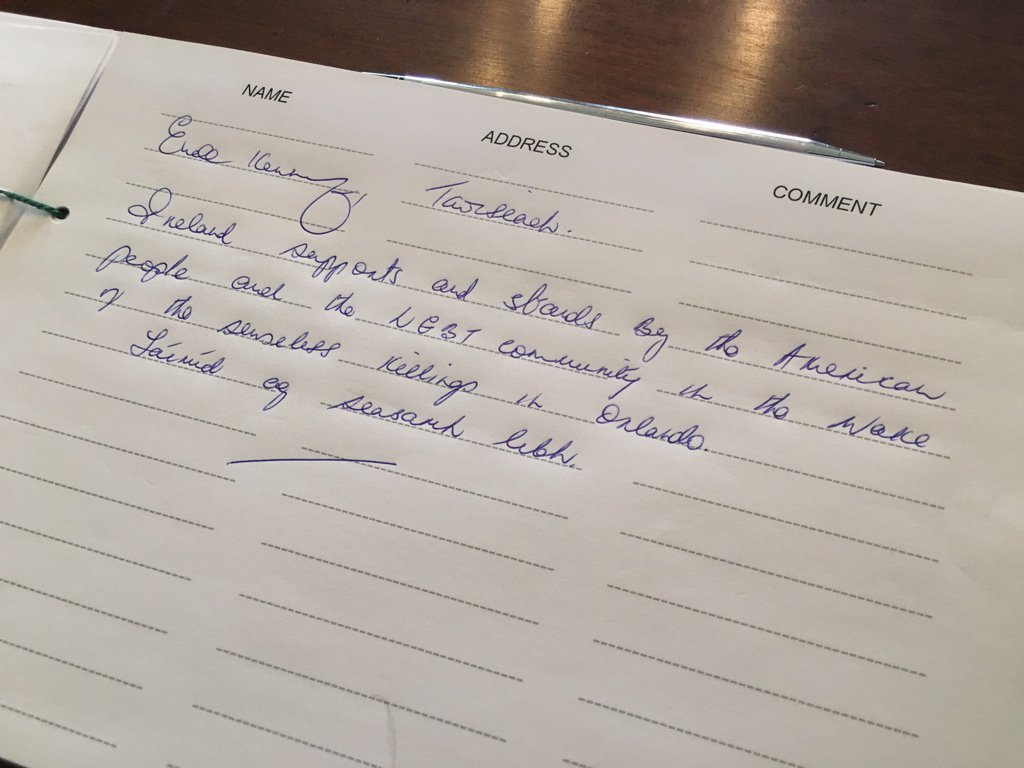 NAME ADDRESS COMMENT
Enda Kenny Taoiseach.
Ireland supports and stands by the American
people and the LGBT community in the wake
of the senseless killings in Orlando.
Táimíd ag seasamh libh.